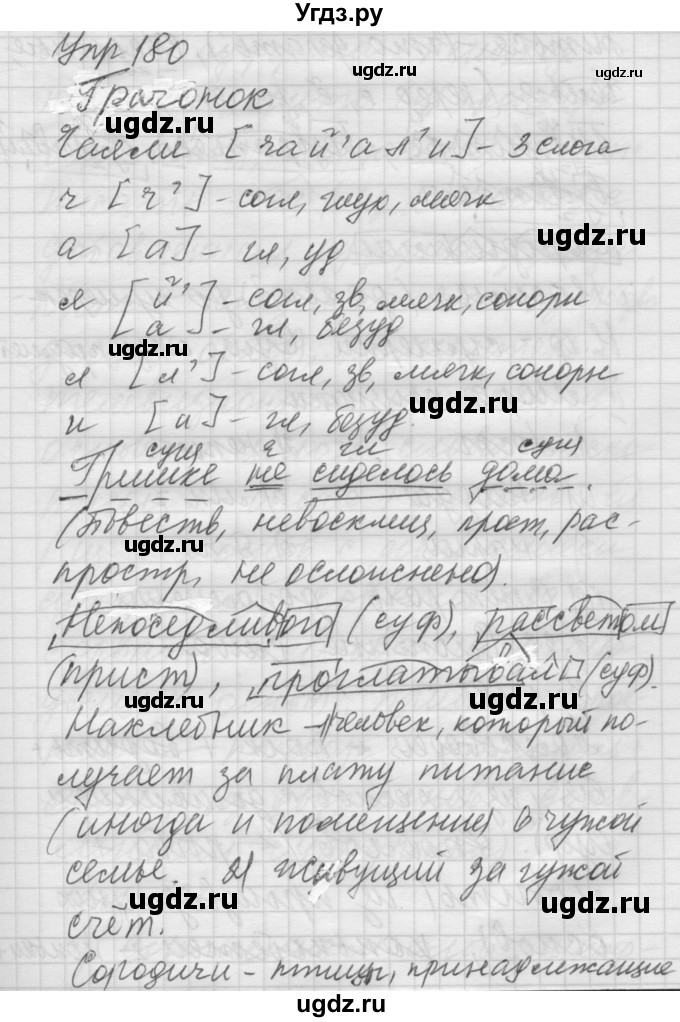 Угдз.ру
Упр 180
ugdz.ru
Грачонок
ugdz.ru ugdz.ru
Чаяли [чай'ал'и] - 3 слога
ч [ч'] - согл, глух, мягк
ugdz.ru
а [а] - гл, уд
я [й'] - согл, зв, мягк, сонорн
[а] - гл, безуд
ugdz.ru
л [л'] - согл, зв, мягк, сонорн
ugdz.ru
и [а] - гл, безуд.
сущ ч гл сущ
Гришке не сиделось дома.
(Повеств, невосклиц, прост, рас-
ugdz.ru
простр, не осложнено).
Непоседливого (суф), рассветом
(прист), проглатывал (суф).
ugdz.ru ugdz.ru
Нахлебник - 1) человек, который по-
лучает за плату питание
(иногда и помещение) в чужой
семье. 2) живущий за чужой
ugdz.ru ugdz.ru
счёт.
Сородичи - птицы, принадлежащие
ugdz.ru